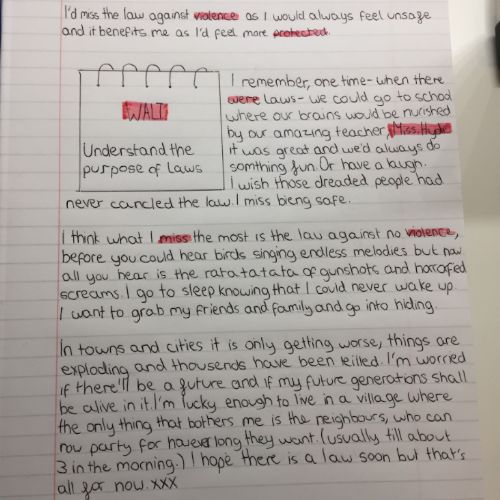 I'd miss the law against violence as I would always feel unsafe
and it benefits me as I'd feel more protected.
WALT
Understand the
purpose of laws
I remember, one time- when there
were laws- we could go to school
where our brains would be nurished
by our amazing teacher, Miss Hyde
it was great and we'd always do
somthing fun. Or have a laugh.
I wish those dreaded people had
never cancled the law. I miss bieng safe.
I think what I miss the most is the law against no violence,
before you could hear birds singing endless melodies but now
all you hear is the ratatatata of gunshots and horrorfed
screams. I go to sleep knowing that I could never wake up
I want to grab my friends and family and go into hiding.
In towns and cities it is only getting worse, things are
exploding and thousends have been killed. I'm worried
if there'll be a future and if my future generations shall
be alive in it. I'm lucky enough to live in a village where
the only thing that bothers me is the neighbours, who can
now party for however long they want. (usually till about
3 in the morning.) I hope there is a law soon but that's
all for now. xxx